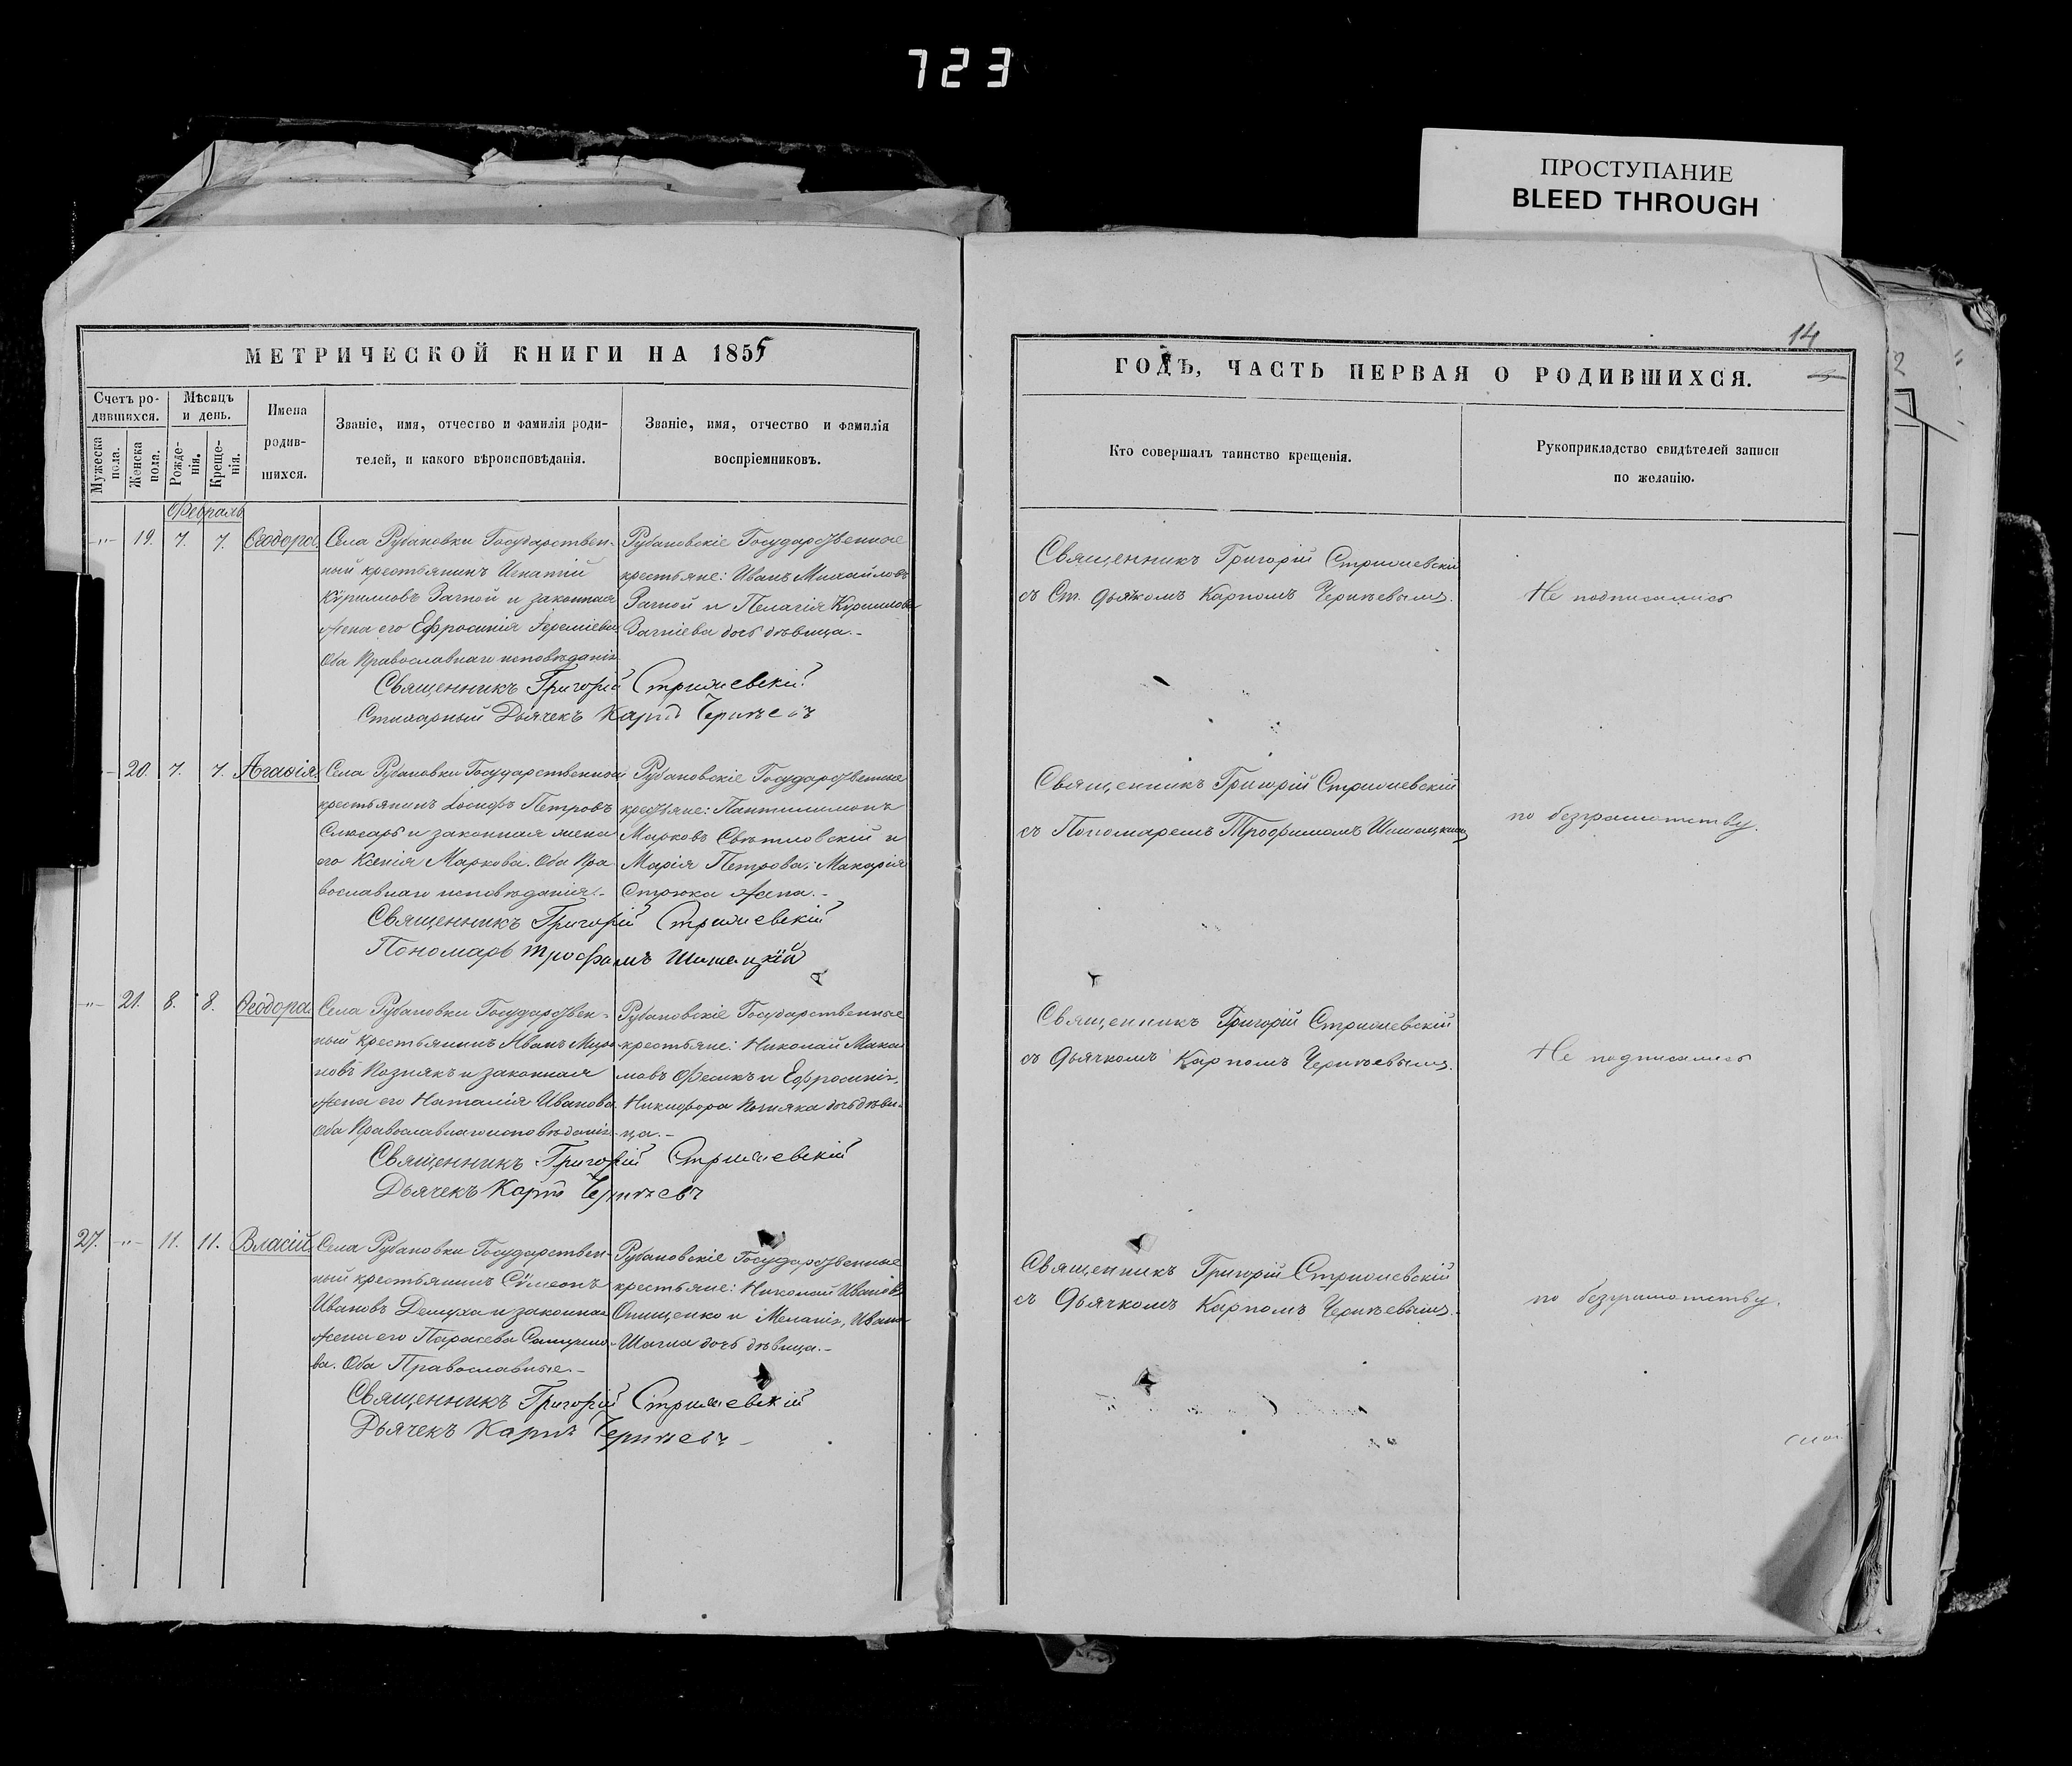 723
ПРОСТУПАНИЕ
BLEED THROUGH
МЕТРИЧЕСКОЙ КНИГИ НА 1855
Счетъ ро-
дившихся.
Мѣсяцъ
и день.
Мужеска
пола.
Женска
пола.
Рожде-
нія.
Креще-
нія.
Имена
родив-
шихся.
Званіе, имя, отчество и фамилія роди-
телей, и какого вѣроисповѣданія.
Званіе, имя, отчество и фамилія
воспріемниковъ.
Февраль
-"- 19. 7. 7. Ѳеодора.
Села Рубановки Государствен-
ный крестьянинъ Игнатій
Кѵрилловъ Загной и законная
жена его Ефросинія Іереміева
Оба Православнаго исповѣданія
Рубановскіе Государственные
крестьяне: Иванъ Михайловъ
Загной и Пелагія Кѵриллова
Загніева дочь дѣвица.-
Священникъ Григорій
Стихарный Дьячекъ Карпъ
20. 7. 7. Агаѳія.
Села Рубановки Государственной
крестьянинъ Іосифъ Петровъ
Слюсарь и законная жена
его Ксенія Маркова. Оба Пра-
вославнаго исповѣданія.-
Рубановскіе Государственные
крестьяне: Пантилимонъ
Марковъ Свѣтловскій и
Марія Петрова, Макарія
Стрюка жена.-
Священникъ Григорій
Пономарь Трофимъ
-"- 21. 8. 8. Ѳеодора.
Села Рубановки Государствен-
ный крестьянинъ Иванъ Миро-
новъ Позиякъ и законная
жена его Наталія Иванова.
Оба Православнаго исповѣданія
Рубановскіе Государственные
крестьяне: Николай Мака-
ровъ Фесикъ и Ефросинія,
Никифора Позняка дочь дѣви-
ца.-
Священникъ Григорій
Дьячекъ Карпъ
27. -"- 11. 11. Власій.
Села Рубановки Государствен-
ный крестьянинъ Сѵмеонъ
Ивановъ Демуха и законная
жена его Параскева
ва. Оба Православные.-
Рубановскіе Государственные
крестьяне: Николай Ивановъ
Онищенко и Меланія, Ивана
Шагла дочь дѣвица.-
Священникъ Григорій
Дьячекъ Карпъ
14
ГОДЪ, ЧАСТЬ ПЕРВАЯ О РОДИВШИХСЯ.
Кто совершалъ таинство крещенія.
Рукоприкладство свидѣтелей записи
по желанію.
Священникъ Григорій
съ Ст. дьячкомъ Карпомъ
Не подписались
Священникъ Григорій
съ Пономаремъ Трофимомъ
по безграмотству.
Священникъ Григорій
съ Дьячкомъ Карпомъ
Не подписались
Священникъ Григорій
съ Дьячкомъ Карпомъ
по безграмотству.